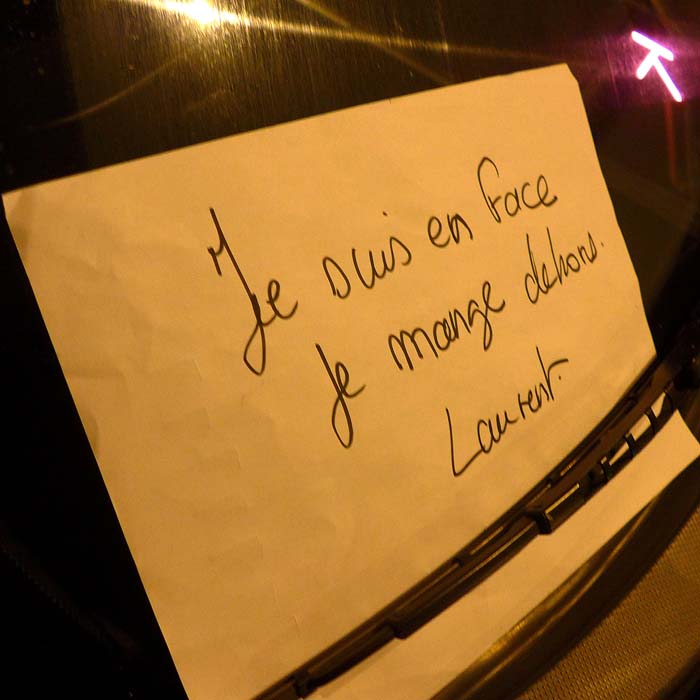 Je suis en face
je mange dehors.
Laurent.